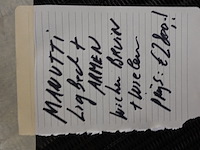 MARUTTI
Lig bed +
ARMEN
wicker BRUIN
+ wielen
prijs: €280,!